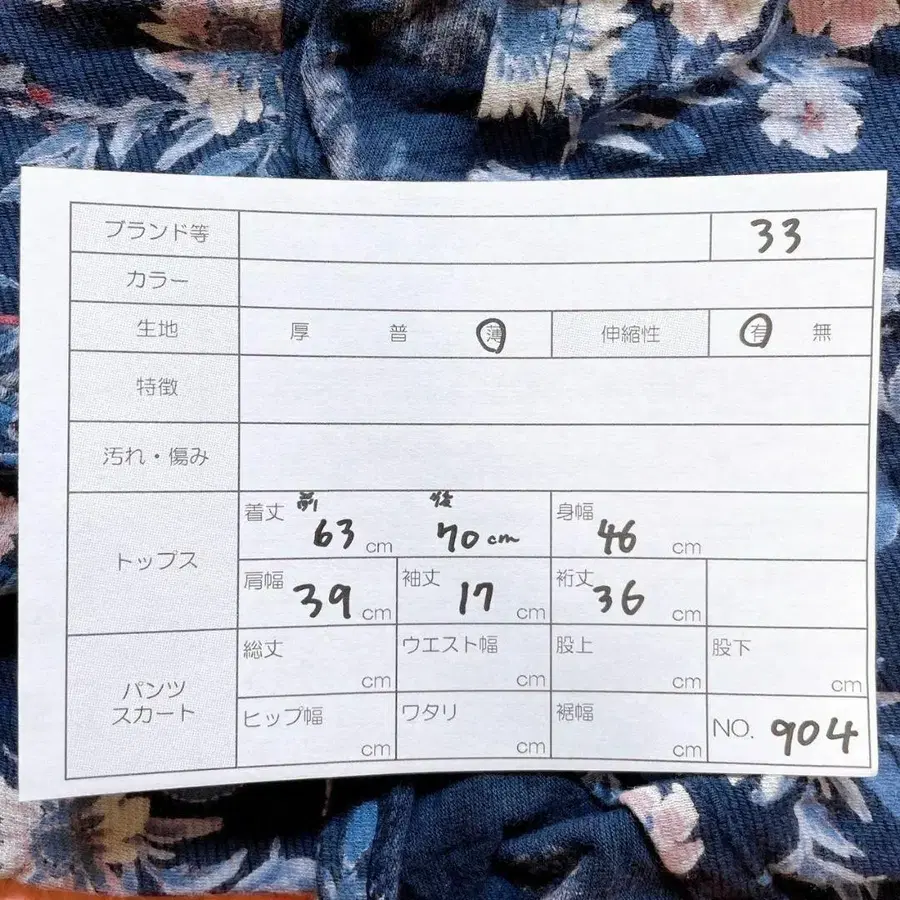 ブランド等 33
カラー
生地 厚 普 薄 伸縮性 有 無
特徴
汚れ・傷み
トップス
着丈 前 63 cm 後 70 cm 身幅 46 cm
肩幅 39 cm 袖丈 17 cm 裄丈 36 cm
パンツ
スカート
総丈 cm ウエスト幅 cm 股上 cm 股下 cm
ヒップ幅 cm ワタリ cm 裾幅 cm NO. 904